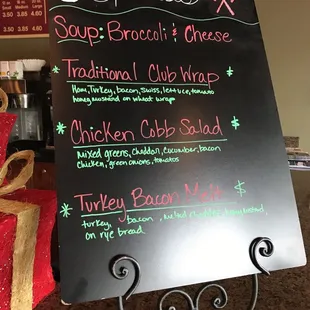 3.50 3.80
Soup: Broccoli & Cheese
* Traditional Club Wrap $
Ham, Turkey, bacon, swiss, lettuce, tomato
honey mustard on wheat wrap
* Chicken Cobb Salad $
Mixed greens, cheddar, cucumber, bacon
chicken, green onions, tomatos
* Turkey Bacon Melt $
turkey, bacon, melted
on rye bread